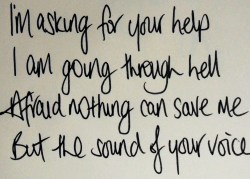 I'm asking for your help
I am going through hell
Afraid nothing can save me
But the sound of your voice